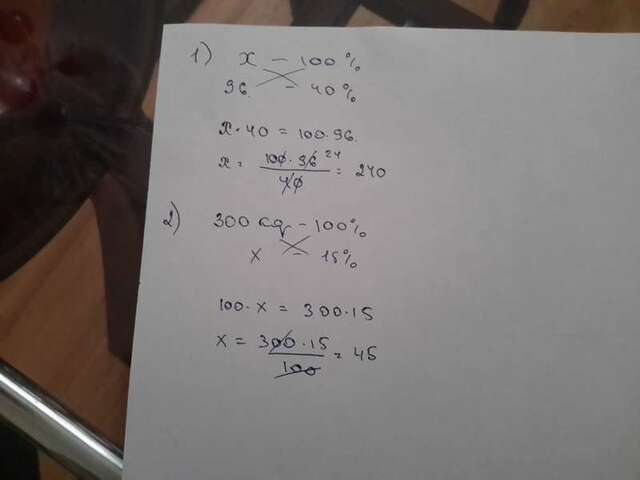 1) x - 100%
96 - 40%
x·40 = 100·96
x = 100·96 24 / 40 = 240
2) 300 kg - 100%
x - 15%
100·x = 300·15
x = 300·15 / 100 = 45